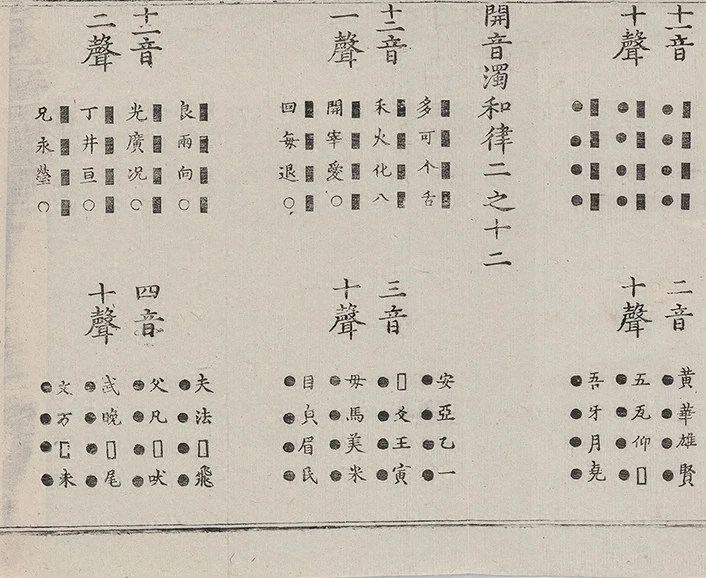 十一音
十聲
二音
十聲
黄華雄賢
五瓦仰□
吾牙月堯
開音濁和律二之十二
十二音
一聲
多可个舌
禾火化八
開宰愛○
回每退○
三音
十聲
安亞乙一
□爻王寅
母馬美米
目皃眉民
十二音
二聲
良兩向○
光廣况○
丁井亘○
兄永瑩○
四音
十聲
夫法□飛
父凡□吠
武晚□尾
文万□未